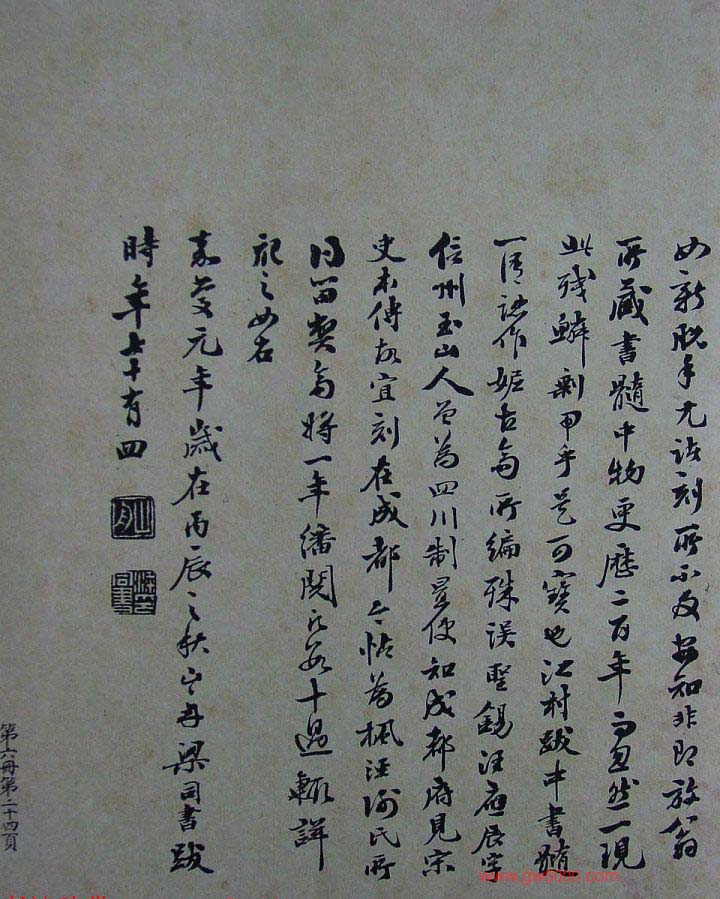 如新脱手尤諸刻所不及安知非即放翁
所藏書髓中物更歷二百年而忽然一現
此殘鱗剩甲乎是可寶也江村跋中書髓
一信誤作姬古為所編殊誤聖錫汪應辰字
信州玉山人曾為四川制置使知成都府見宋
史本傳故宜刻在成都今帖為楓涇謝氏所
得留契為將一年繙閱凡數十過輒詳
記之如右
嘉慶元年歲在丙辰之秋山舟梁同書跋
時年七十有四
第六冊第二十四頁